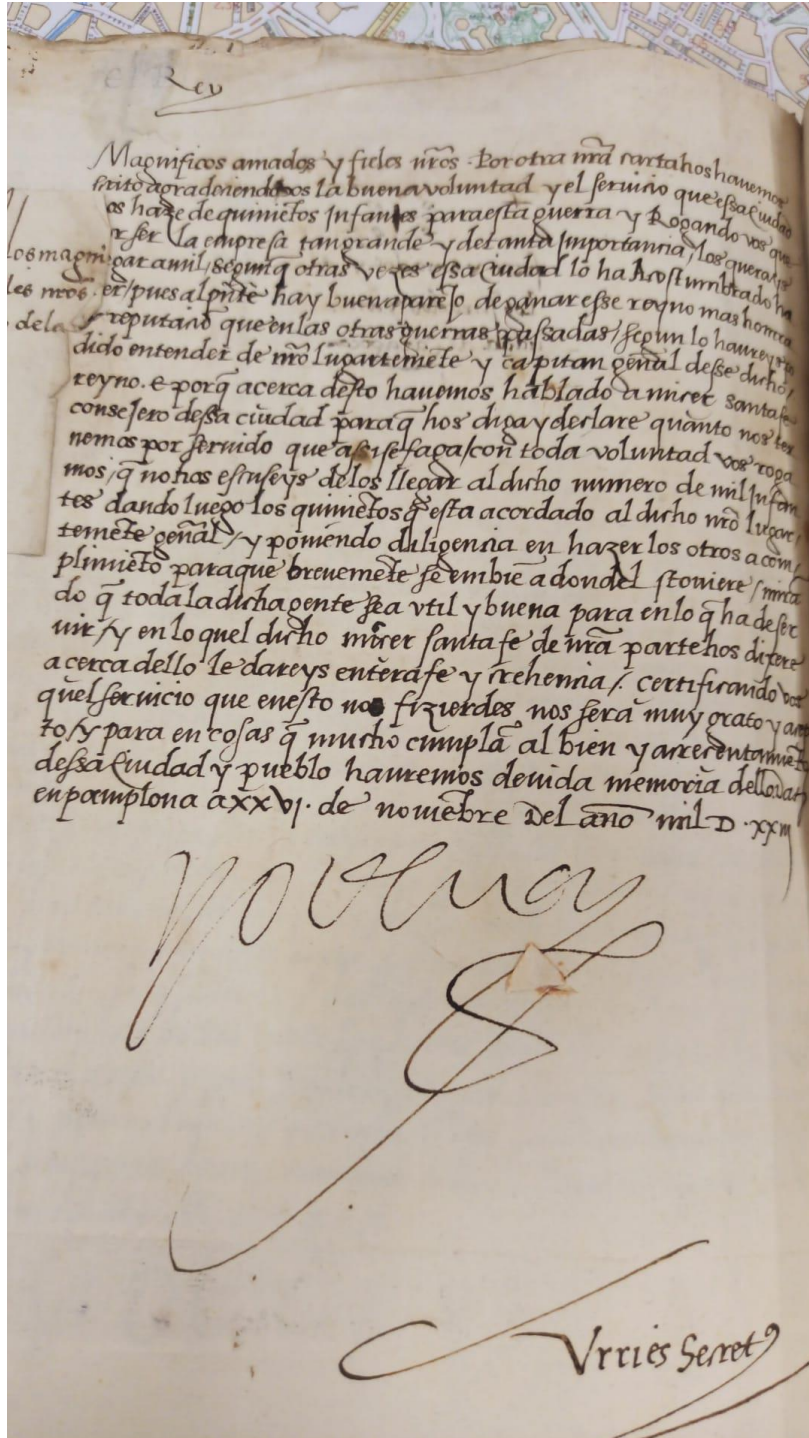 Rey
Magnificos amados y fieles nr̃os. Por otra nr̃a carta hos hauemos
scrito agradeciendohos la buena voluntad y el seruicio que essa Ciudad
os haze de quiniẽtos Infantes para esta guerra y Rogando vos que
r ser la empresa tan grande y de tanta Importancia, los querays
gar a mil, segunq̃ otras vezes essa Ciudad lo ha Acostumbrado ha
er, pues al pñte hay buen aparejo de ganar esse reyno mas honrra
y reputaciõ que en las otras guerras passadas, segun lo haureys
dido entender de nr̃o lugarteniẽte y capitan geñal desse dicho,
reyno. E porq̃ acerca desto hauemos hablado a micer santa fe
consejero dessa ciudad para q̃ hos diga y declare quanto nos ter
nemos por seruido que assi se faga, con toda voluntad vos roga
mos, q̃ no hos escuseys de los llegar al dicho numero de mil Infan
tes dando luego los quiniẽtos q̃ esta acordado al dicho nr̃o lugar,
teniẽte geñal, y poniendo diligencia en hazer los otros a com,
plimiẽto para que breuemẽte se embiẽ a donde el stouiere, mirã
do q̃ toda la dicha gente sea vtil y buena para en lo q̃ ha de ser
uir, y en lo quel dicho micer santa fe de nr̃a parte hos dixere
acerca dello le dareys entera fe y crehencia, certificando vos
quel seruicio que en esto nos fizierdes nos sera muy grato y acep
to, y para en cosas q̃ mucho cumplã al bien y acrecentamiẽto
dessa Ciudad y pueblo hauremos deuida memoria dello. Dat
en pamplona a XXVJ. de nouiẽbre Del año mil D. xxiij
los magni
les nr̃os.
de la
yo el Rey
Vrries Secret